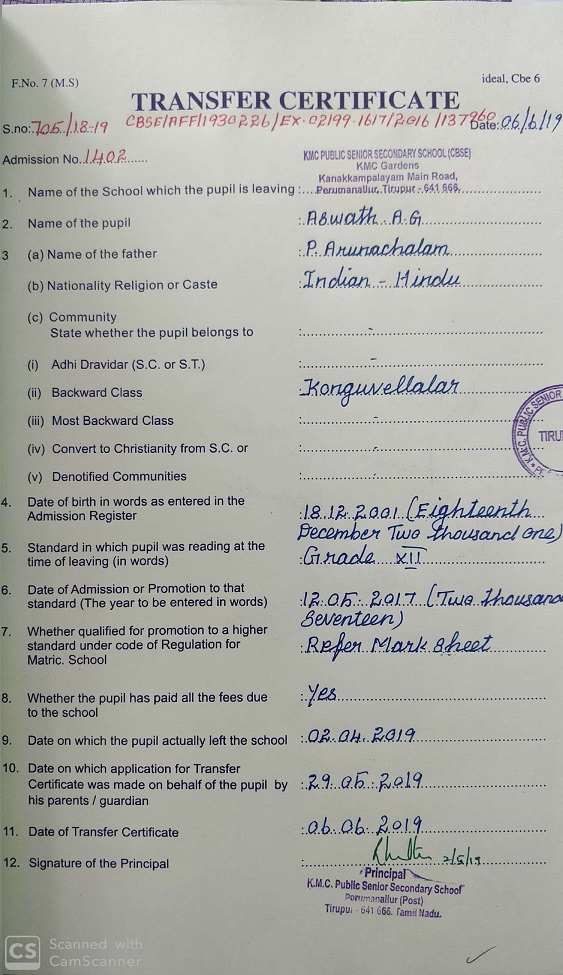 F.No. 7 (M.S)
ideal, Cbe 6
TRANSFER CERTIFICATE
S.no: 705/18-19 CBSE/AFF/1930226/EX-02199-1617/2016/137960 Date: 06/6/19
Admission No. 1402
KMC PUBLIC SENIOR SECONDARY SCHOOL (CBSE)
KMC Gardens
Kanakkampalayam Main Road,
1. Name of the School which the pupil is leaving : Perumanallur, Tirupur - 641 666.
2. Name of the pupil : Aswath. A.G
3 (a) Name of the father : P. Arunachalam
(b) Nationality Religion or Caste : Indian - Hindu
(c) Community
State whether the pupil belongs to : -
(i) Adhi Dravidar (S.C. or S.T.) : -
(ii) Backward Class : Konguvellalar
(iii) Most Backward Class : -
(iv) Convert to Christianity from S.C. or : -
(v) Denotified Communities :
K.M.C. PUBLIC SENIOR
TIRU
4. Date of birth in words as entered in the
Admission Register : 18.12.2001 (Eighteenth
December Two thousand one)
5. Standard in which pupil was reading at the
time of leaving (in words) : Grade XII
6. Date of Admission or Promotion to that
standard (The year to be entered in words) : 12.05.2017 (Two thousand
Seventeen)
7. Whether qualified for promotion to a higher
standard under code of Regulation for : Refer Mark Sheet
Matric. School
8. Whether the pupil has paid all the fees due : Yes
to the school
9. Date on which the pupil actually left the school : 02.04.2019
10. Date on which application for Transfer
Certificate was made on behalf of the pupil by : 29.05.2019
his parents / guardian
11. Date of Transfer Certificate : 06.06.2019
12. Signature of the Principal :
Principal
K.M.C. Public Senior Secondary School
Perumanallur (Post)
Tirupur - 641 666. Tamil Nadu.
CS Scanned with
CamScanner